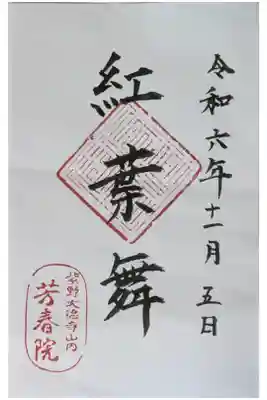 令和六年十一月五日
紅葉舞
紫野大徳寺山内
芳春院